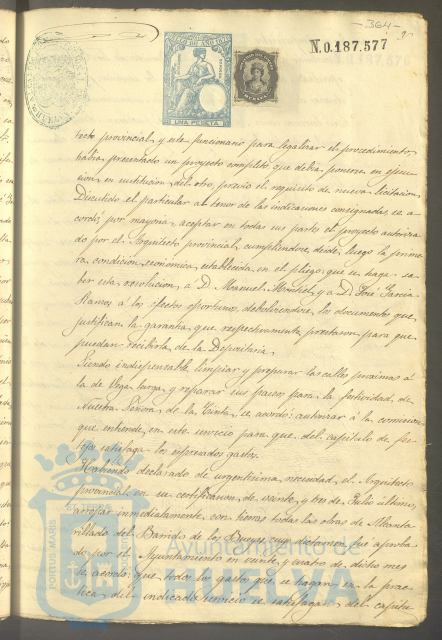 364
N.0.187.577
UNA PESETA
tecto provincial, y este funcionario para legalizar el procedimiento
habia presentado un proyecto completo que debia ponerse en ejecu-
cion en sustitucion del otro, previo el requisito de nueva licitacion.
Discutido el particular al tenor de las indicaciones consignadas, se a-
cordó por mayoria aceptar en todas sus partes el proyecto autoriza-
do por el Arquitecto provincial, cumpliendose, desde luego la prime-
ra condicion economica establecida en el pliego: que se haga sa-
ber esta resolucion á D. Manuel y a D. José Garcia
Ramos á los efectos oportunos, debolviendose los documentos que
justifican la garantia que respectivamente prestaron para que
puedan recibirla de la Depositaria.
Siendo indispensable limpiar y preparar las calles proximas á
la de Vega larga, y reparar sus paseos para la festividad de
Nuestra Señora de la Cinta, se acordó: autorizar á la comision
que entiende en este servicio para que del capitulo de fes-
tejos satisfaga los espresados gastos.
Habiendo declarado de urgentisima necesidad el Arquitecto
provincial en su certificacion de veinte y tres de Julio último,
arropar inmediatamente con tierra todas las obras de Alcanta-
rillado del Barrio de los Bueyes cuyo dictamen fué aproba-
do por el Ayuntamiento en veinte y cuatro de dicho mes
se acordó: que todos los gastos que se hagan en la prac-
tica del indicado servicio se satisfagan del capitu-
PORTUS MARIS
Ayuntamiento de
HUELVA